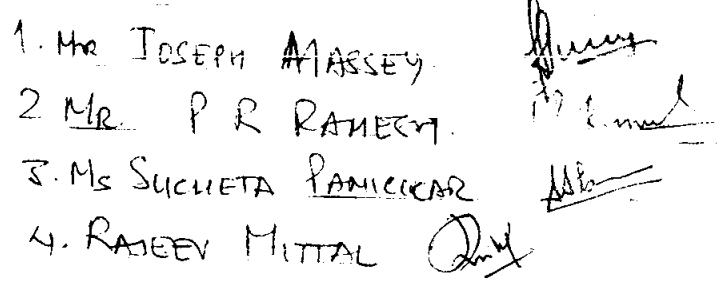 1. Mr JOSEPH MASSEY
2 MR. P R RAMESH.
3. Ms SUCHETA PANICKAR
4. RAJEEV MITTAL